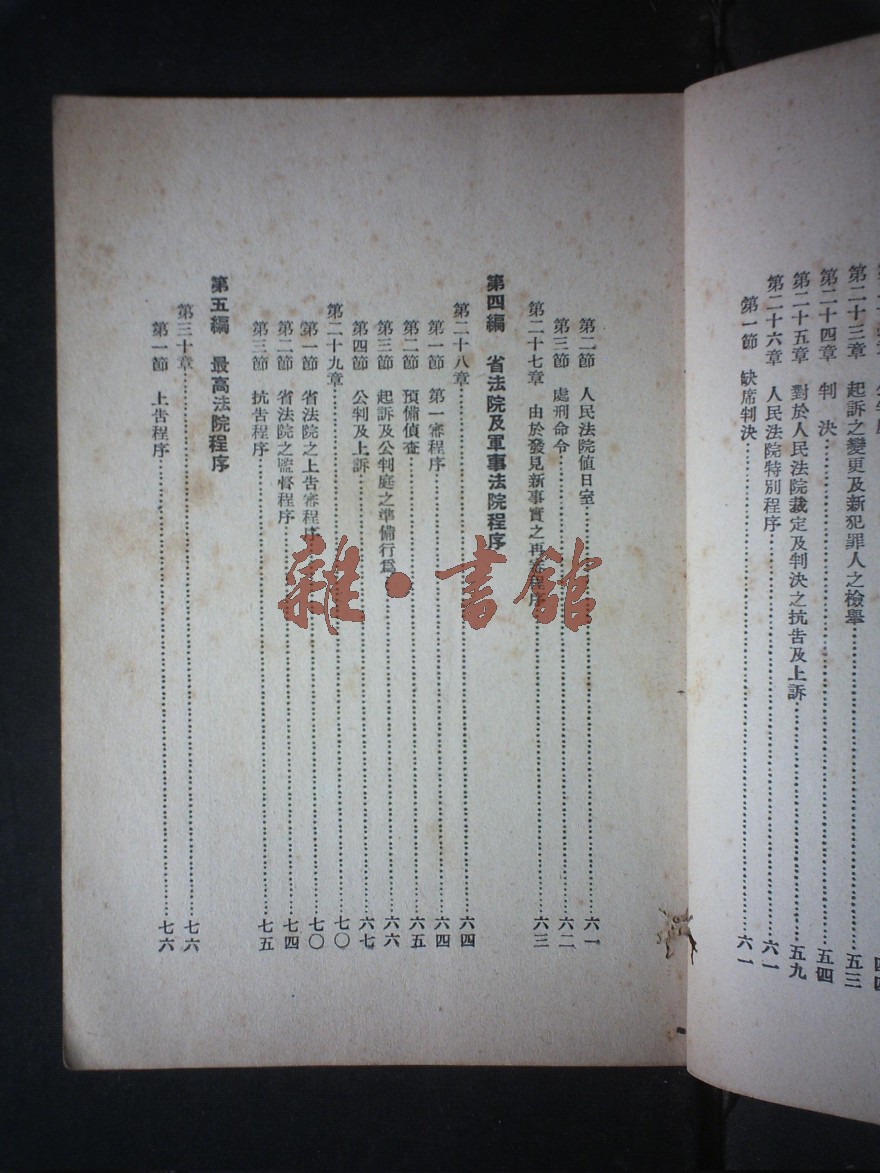 第二十三章 起訴之變更及新犯罪人之檢舉……五三
第二十四章 判決……五四
第二十五章 對於人民法院裁定及判決之抗告及上訴……五九
第二十六章 人民法院特別程序……六一
第一節 缺席判決……六一
第二節 人民法院值日室……六一
第三節 處刑命令……六二
第二十七章 由於發見新事實之再審程序……六三
第四編 省法院及軍事法院程序
第二十八章……六四
第一節 第一審程序……六四
第二節 預備偵查……六五
第三節 起訴及公判庭之準備行為……六六
第四節 公判及上訴……六七
第二十九章……七〇
第一節 省法院之上告審程序……七〇
第二節 省法院之監督程序……七四
第三節 抗告程序……七五
第五編 最高法院程序
第三十章……七六
第一節 上告程序……七六
雜·書館